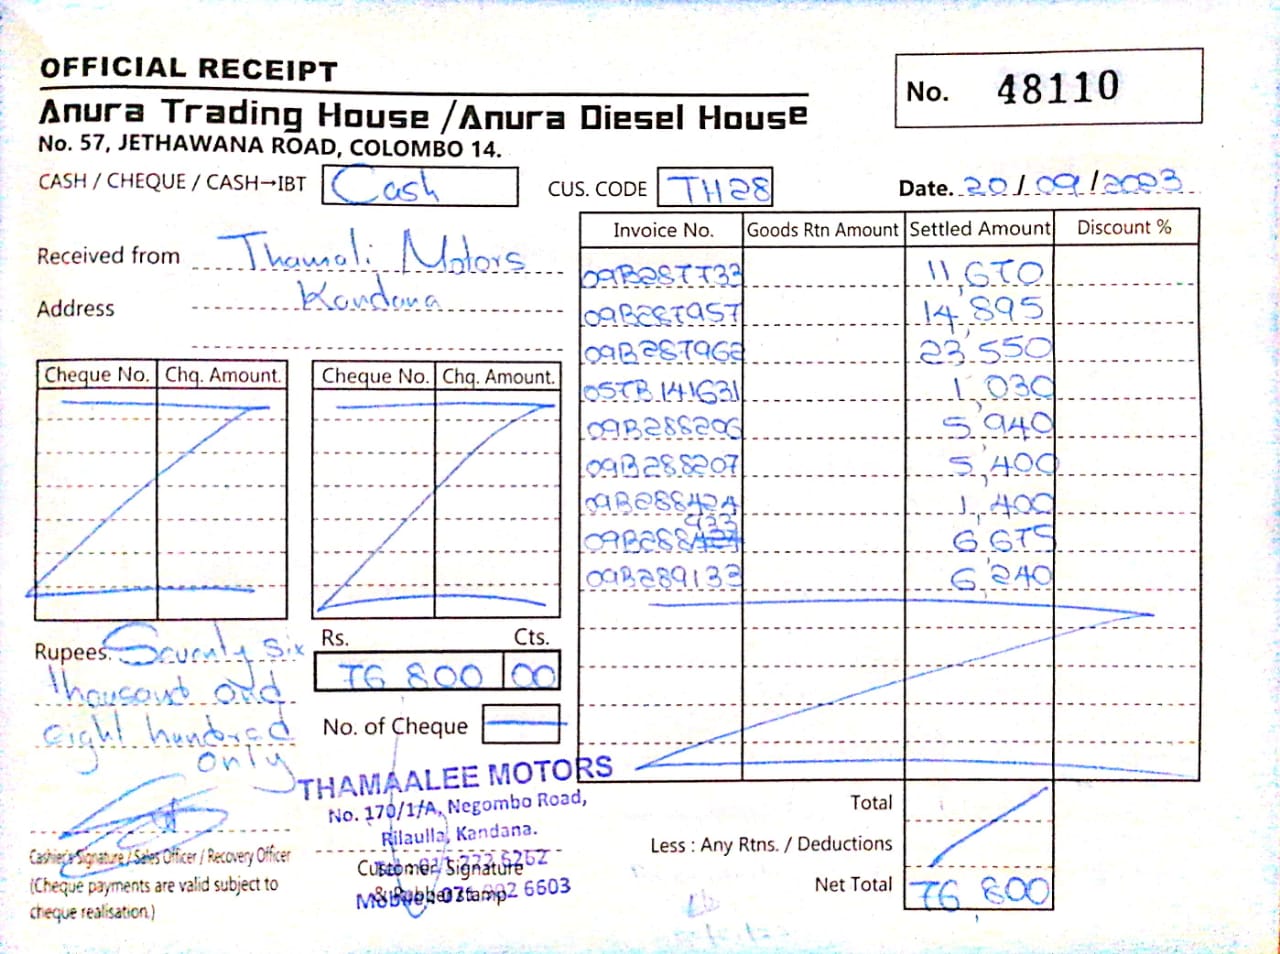 OFFICIAL RECEIPT
No. 48110
Anura Trading House / Anura Diesel House
No. 57, JETHAWANA ROAD, COLOMBO 14.
CASH / CHEQUE / CASH→IBT Cash CUS. CODE TH28 Date. 20/09/2023
Received from Thamali Motors
Address Kandana
Invoice No. Goods Rtn Amount Settled Amount Discount %
09B287733 11,670
09B287957 14,895
09B287962 23,550
05TB141631 1,030
09B288206 5,940
09B288207 5,400
09B288424 1,400
09B288933 6,675
09B289133 6,240
Cheque No. Chq. Amount. Cheque No. Chq. Amount.
Rupees. Seventy six
thousand and
eight hundred
only
Rs. Cts.
76 800 00
No. of Cheque
THAMAALEE MOTORS
No. 170/1/A, Negombo Road,
Rilaulla, Kandana.
Customer Signature
& Rubber Stamp
Cashier's Signature / Sales Officer / Recovery Officer
(Cheque payments are valid subject to
cheque realisation.)
Total
Less : Any Rtns. / Deductions
Net Total 76,800